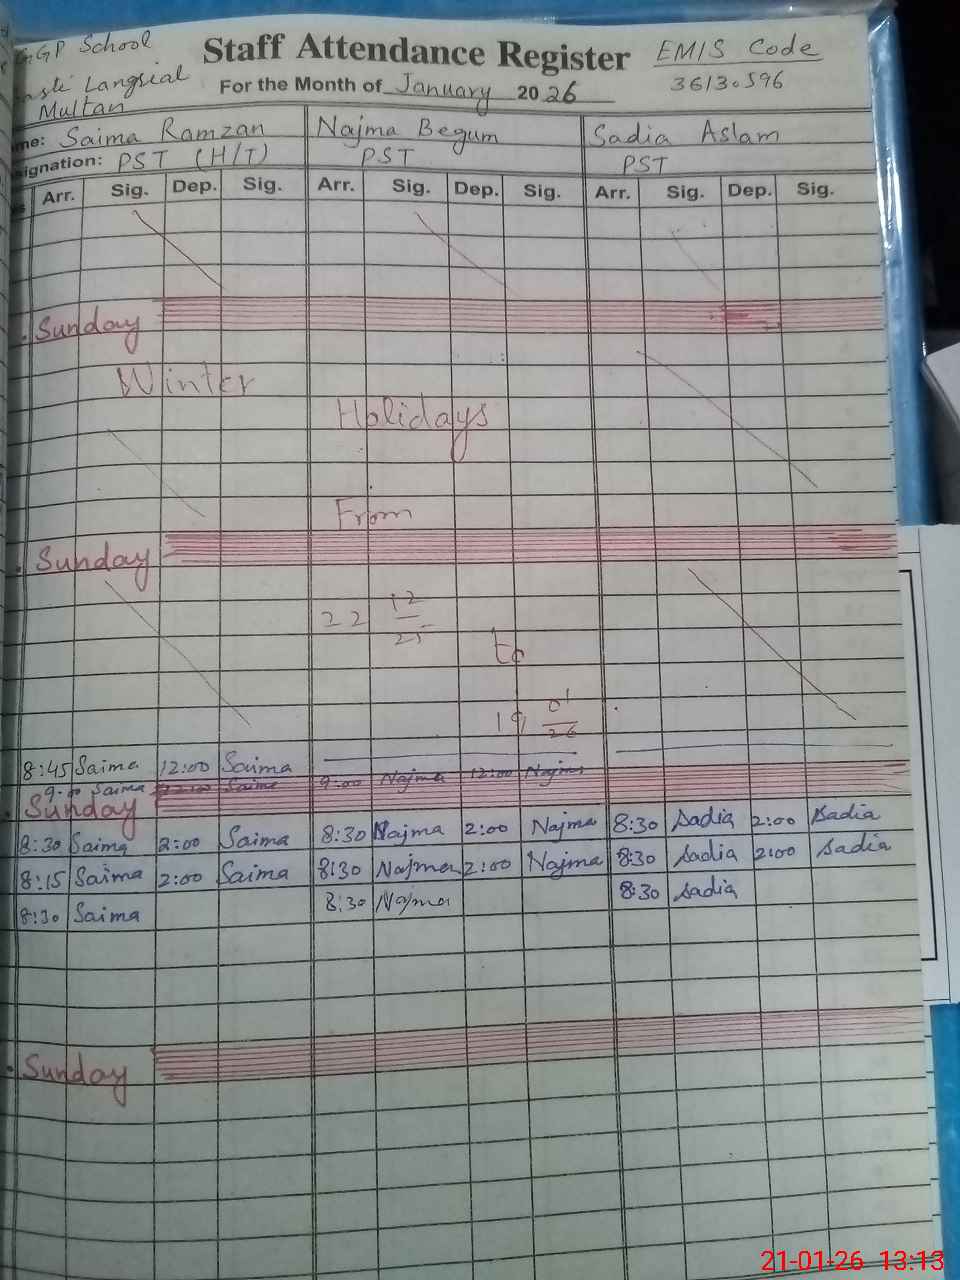 GGP School
Basti Langsial
Multan
Staff Attendance Register
For the Month of January 2026
EMIS Code
36130596
me: Saima Ramzan Najma Begum Sadia Aslam
signation: PST (H/T) PST PST
Arr. Sig. Dep. Sig. Arr. Sig. Dep. Sig. Arr. Sig. Dep. Sig.
Sunday
Winter
Holidays
From
Sunday
22 12/25
to
19 01/26
8:45 Saima 12:00 Saima
9:00 Saima 12:00 Saima 9:00 Najma 12:00 Najma
Sunday
8:30 Saima 2:00 Saima 8:30 Najma 2:00 Najma 8:30 Sadia 2:00 Sadia
8:15 Saima 2:00 Saima 8:30 Najma 2:00 Najma 8:30 Sadia 2:00 Sadia
8:30 Saima 8:30 Najma 8:30 Sadia
Sunday
21-01-26 13:13